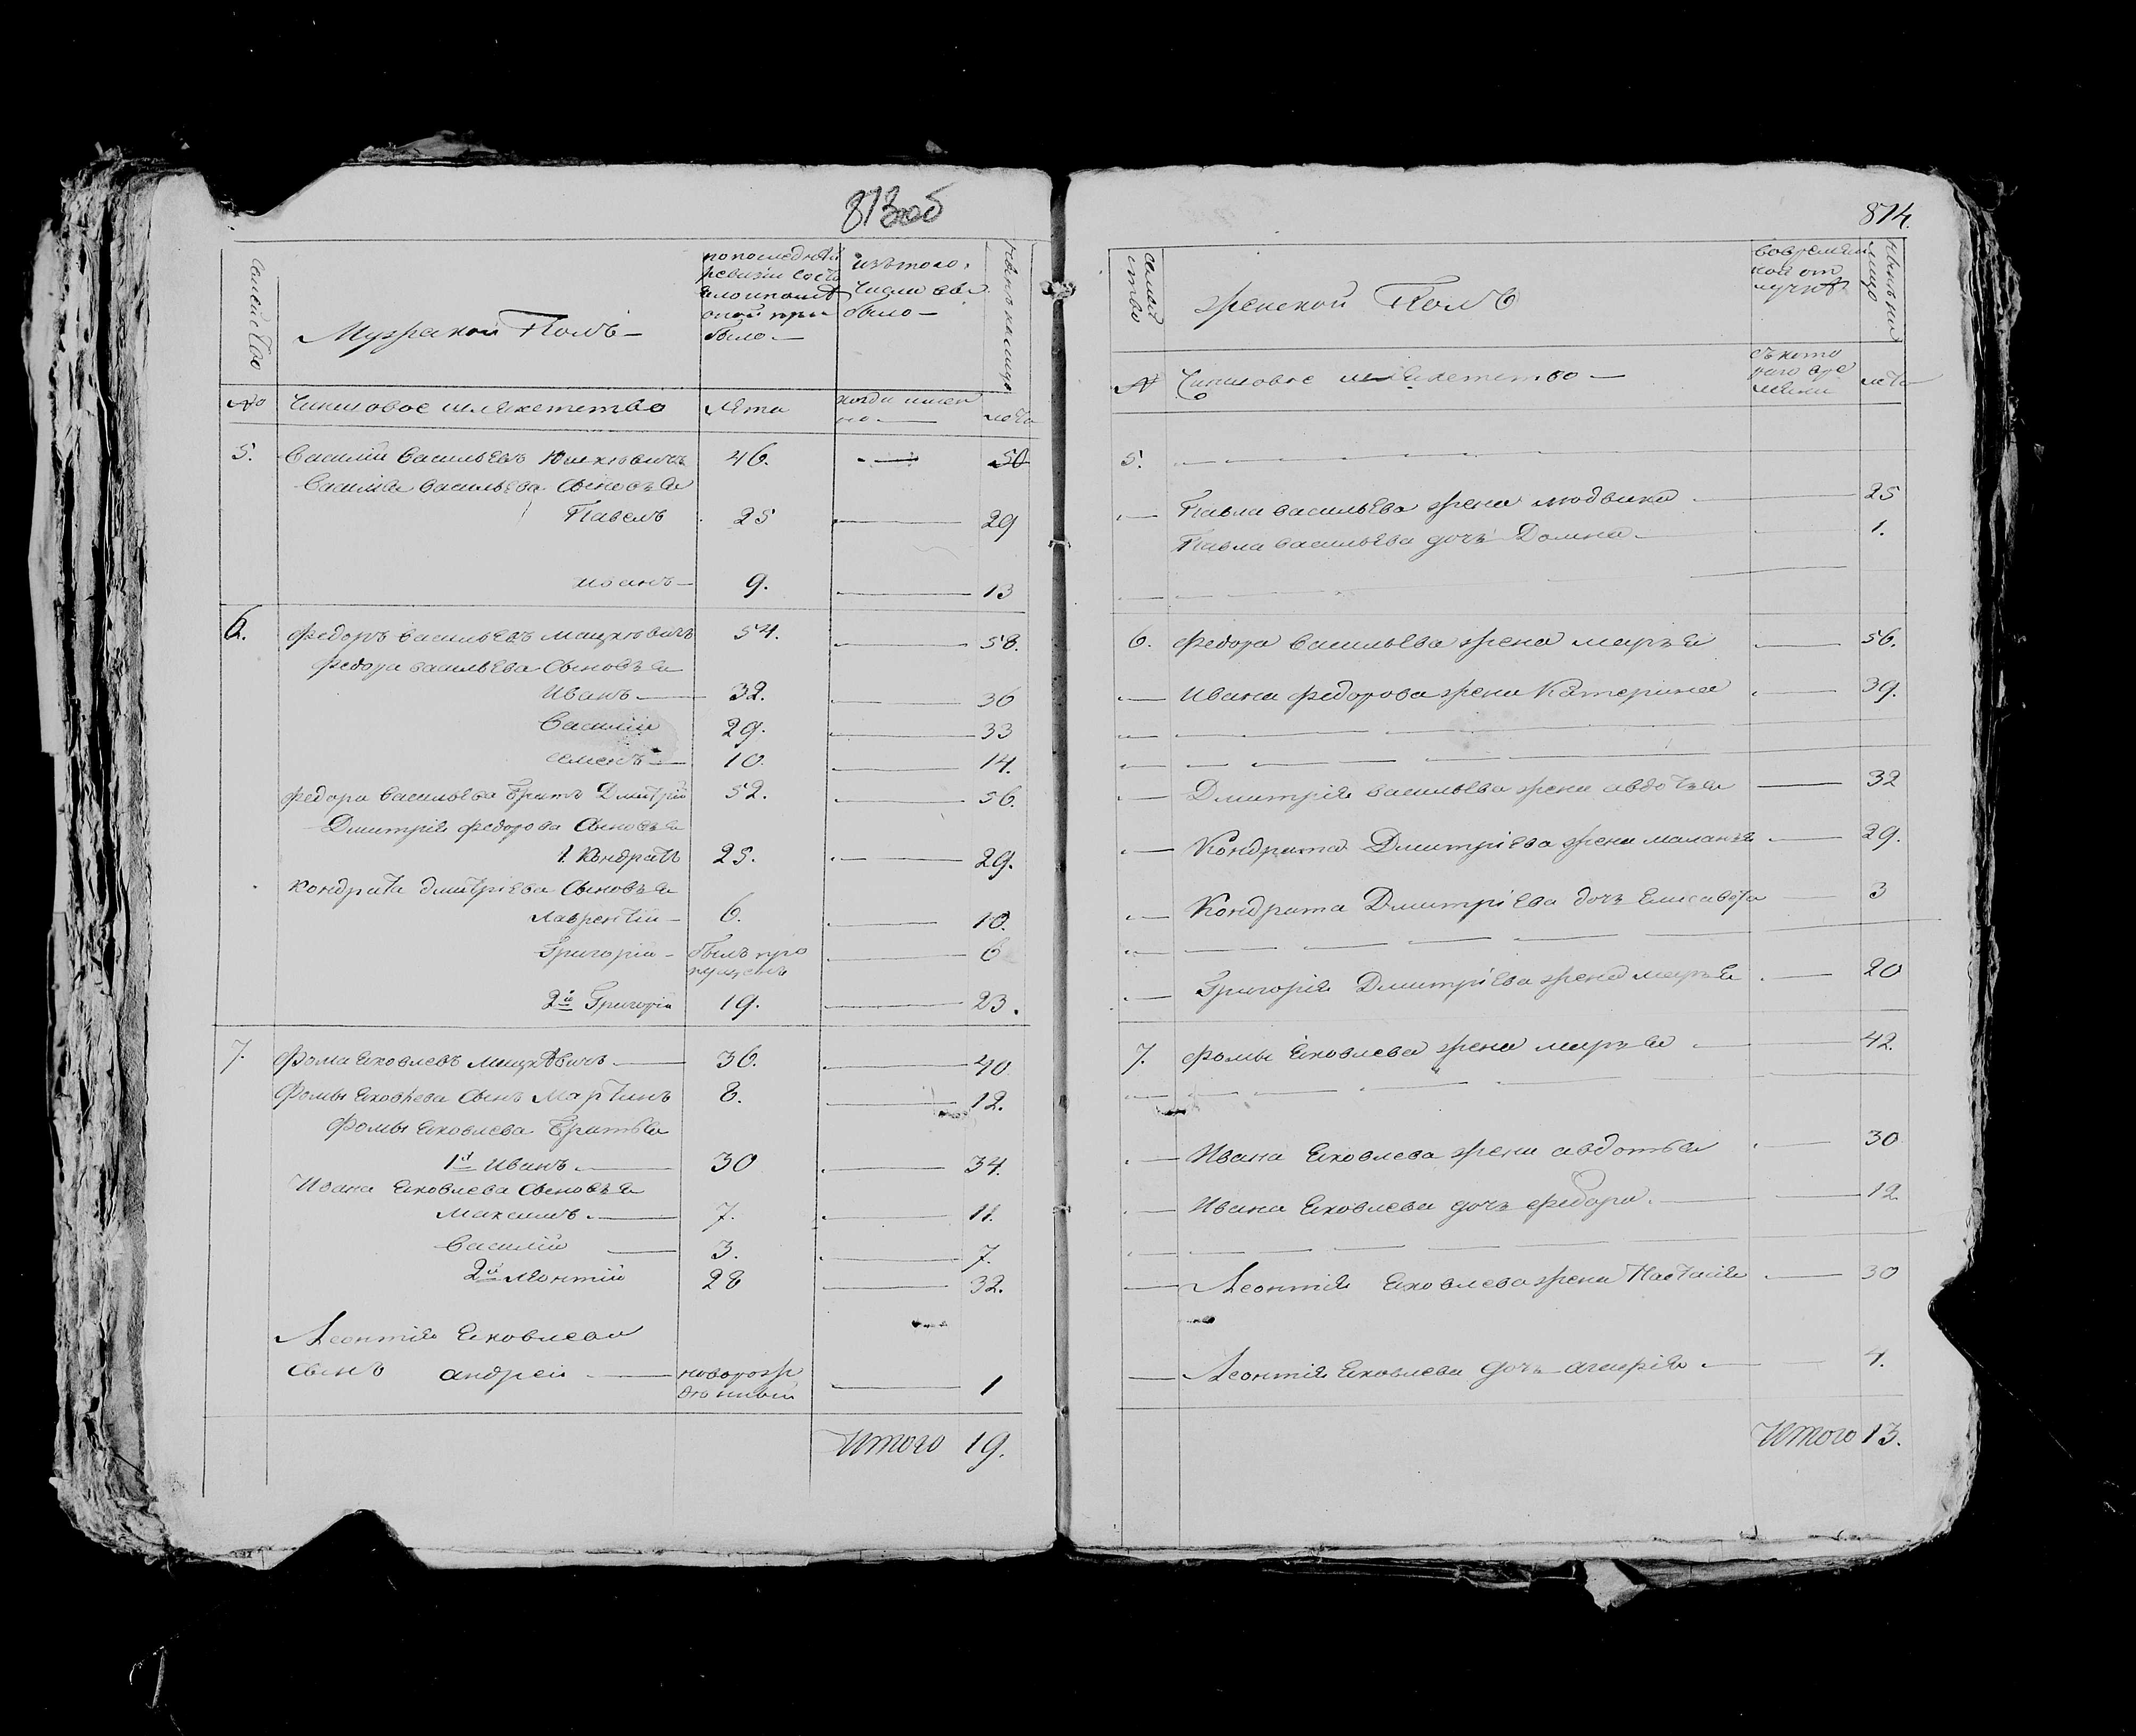 813 об
Семейство
Мужскои Полъ —
по последнѣй
ревизіи состо
яло и послѣ
оной при
было —
изъ того
числа вы
было —
Нынѣ на лицо
№
Чиншовое шляхетство
Лѣта
когда имен
но —
лѣта
5. Василій Васильевъ 46. — 50
Василія Васильева Сыновья
Павелъ 25 — 29
Иванъ — 9. — 13
6. Федоръ Васильевъ Мацкѣвичъ 54. — 58.
Федора Васильева Сыновья
Иванъ — 32. — 36
Василій 29. — 33
Семенъ — 10. — 14.
Федора Васильева Братъ Дмитрій 52. — 56.
Дмитрія Федорова Сыновья
1. Кондратъ 25. — 29.
Кондрата Дмитріева Сыновья
Лаврентій — 6. — 10.
Григорій — былъ про — 6
пущенъ
2й Григорій 19. — 23.
7. Фома Яковлевъ Мацкѣвичъ — 36. — 40
Фомы Яковлева Сынъ Мартинъ 8. — 12.
Фомы Яковлева Братья
1й Иванъ — 30 — 34.
Ивана Яковлева Сыновья
Максимъ — 7. — 11.
Василій — 3. — 7.
2й Леонтій 28 — 32.
Леонтія Яковлева
Сынъ Андрей — новорож — 1
денный
Итого 19.
874.
Семей
ство
Женской Полъ
во времян
ной от
лучкѣ
Нынѣ на
лицо
№
Чиншовое шляхетство —
съ кото
раго вре
мяни
лѣта
5. —
— Павла Васильева жена Людвика — 25
Павла Васильева дочь Домна — 1.
— —
6. Федора Васильева жена Марья — 56.
— Ивана Федорова жена Катерина — 39.
— —
— —
— Дмитрія Васильева жена Авдотья — 32
— Кондрата Дмитріева жена Маланья — 29.
— Кондрата Дмитріева дочь Елисавета — 3
— —
— Григорія Дмитріева жена Марья — 20
7. Фомы Яковлева жена Марья — 42.
— —
— Ивана Яковлева жена Авдотья — 30
— Ивана Яковлева дочь Федора — 12
— —
— Леонтія Яковлева жена Настасія — 30
— Леонтія Яковлева дочь Агафія — 4.
Итого 13.